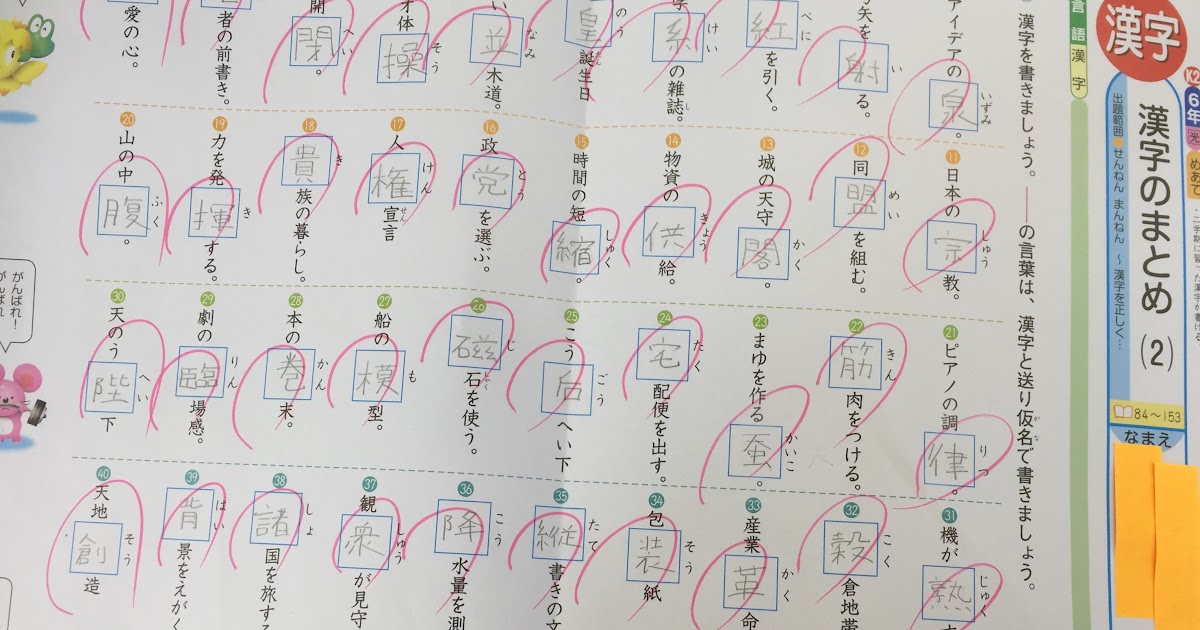 漢字
6年
漢字のまとめ(2)
出題範囲 せんねん まんねん ~ 漢字を正しく…
84~153
なまえ
言語
漢字
漢字を書きましょう。――の言葉は、漢字と送り仮名(がな)で書きましょう。
アイデアの泉(いずみ)。
矢を射(い)る。
紅(べに)を引く。
系(けい)の雑誌(し)。
皇(のう)誕(たん)生日
並(なみ)木道。
体操(そう)
開閉(へい)。
者の前書き。
愛の心。
11 日本の宗(しゅう)教。
12 同盟(めい)を組む。
13 城の天守閣(かく)。
14 物資の供(きょう)給。
15 時間の短縮(しゅく)。
16 政党(とう)を選ぶ。
17 人権(けん)宣(せん)言
18 貴(き)族の暮らし。
19 力を発揮(き)する。
20 山の中腹(ふく)。
21 ピアノの調律(りつ)。
22 筋(きん)肉をつける。
23 まゆを作る蚕(かいこ)。
24 宅(たく)配便を出す。
25 こう后(ごう)へい下
26 磁(じ)石(しゃく)を使う。
27 船の模(も)型。
28 本の巻(かん)末。
29 劇の臨(りん)場感。
30 天のう陛(へい)下
31 機が熟(じゅく)
32 穀(こく)倉地帯
33 産業革(かく)命
34 包装(そう)紙
35 縦(たて)書きの文
36 降(こう)水量を測
37 観衆(しゅう)が見守
38 諸(しょ)国を旅する
39 背(はい)景をえがく
40 天地創(そう)造
がんばれ!
がんばれ